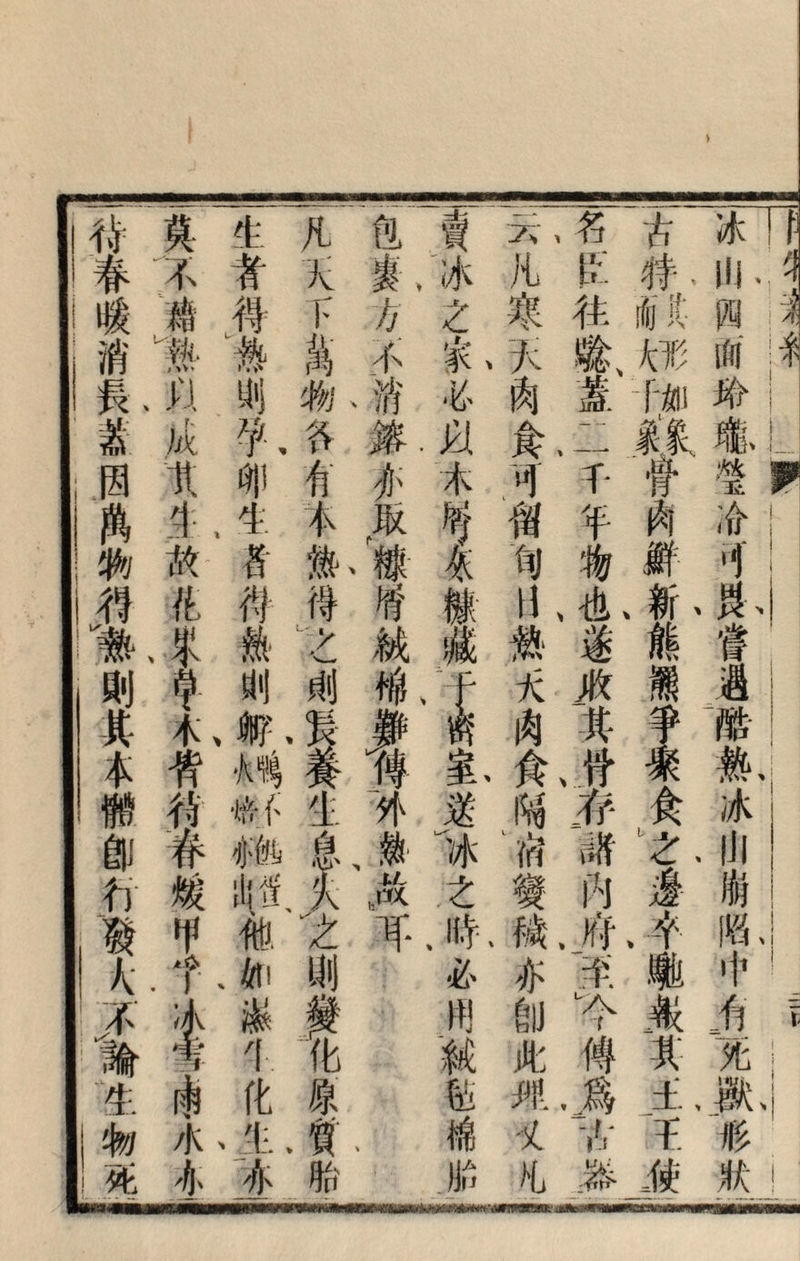 冰山四面玲瓏瑩冷可畏嘗遇酷熱冰山崩陷中有死獸形狀
古特其形如象而大于象骨肉鮮新熊羆爭聚食之邊卒馳報其王王使
名臣往驗蓋二千年物也遂收其骨存諸内府至今傳爲古器
云凡寒天肉食可留旬日熱天肉食隔宿變穢亦卽此理又凡
賣冰之家必以木屑灰糠藏于密室送冰之時必用絨毡棉胎
包裹方不消鎔亦取糠屑絨棉難傳外熱故耳
凡天下萬物各有本熱得之則長養生息失之則變化原質胎
生者得熱則孕卵生者得熱則孵鴨不火焙亦出他如濕生化生亦
莫不藉熱以成其生故花果草木皆待春煖甲孚冰雪雨水亦
待春暖消長蓋因萬物得熱則其本體卽行發大不論生物死